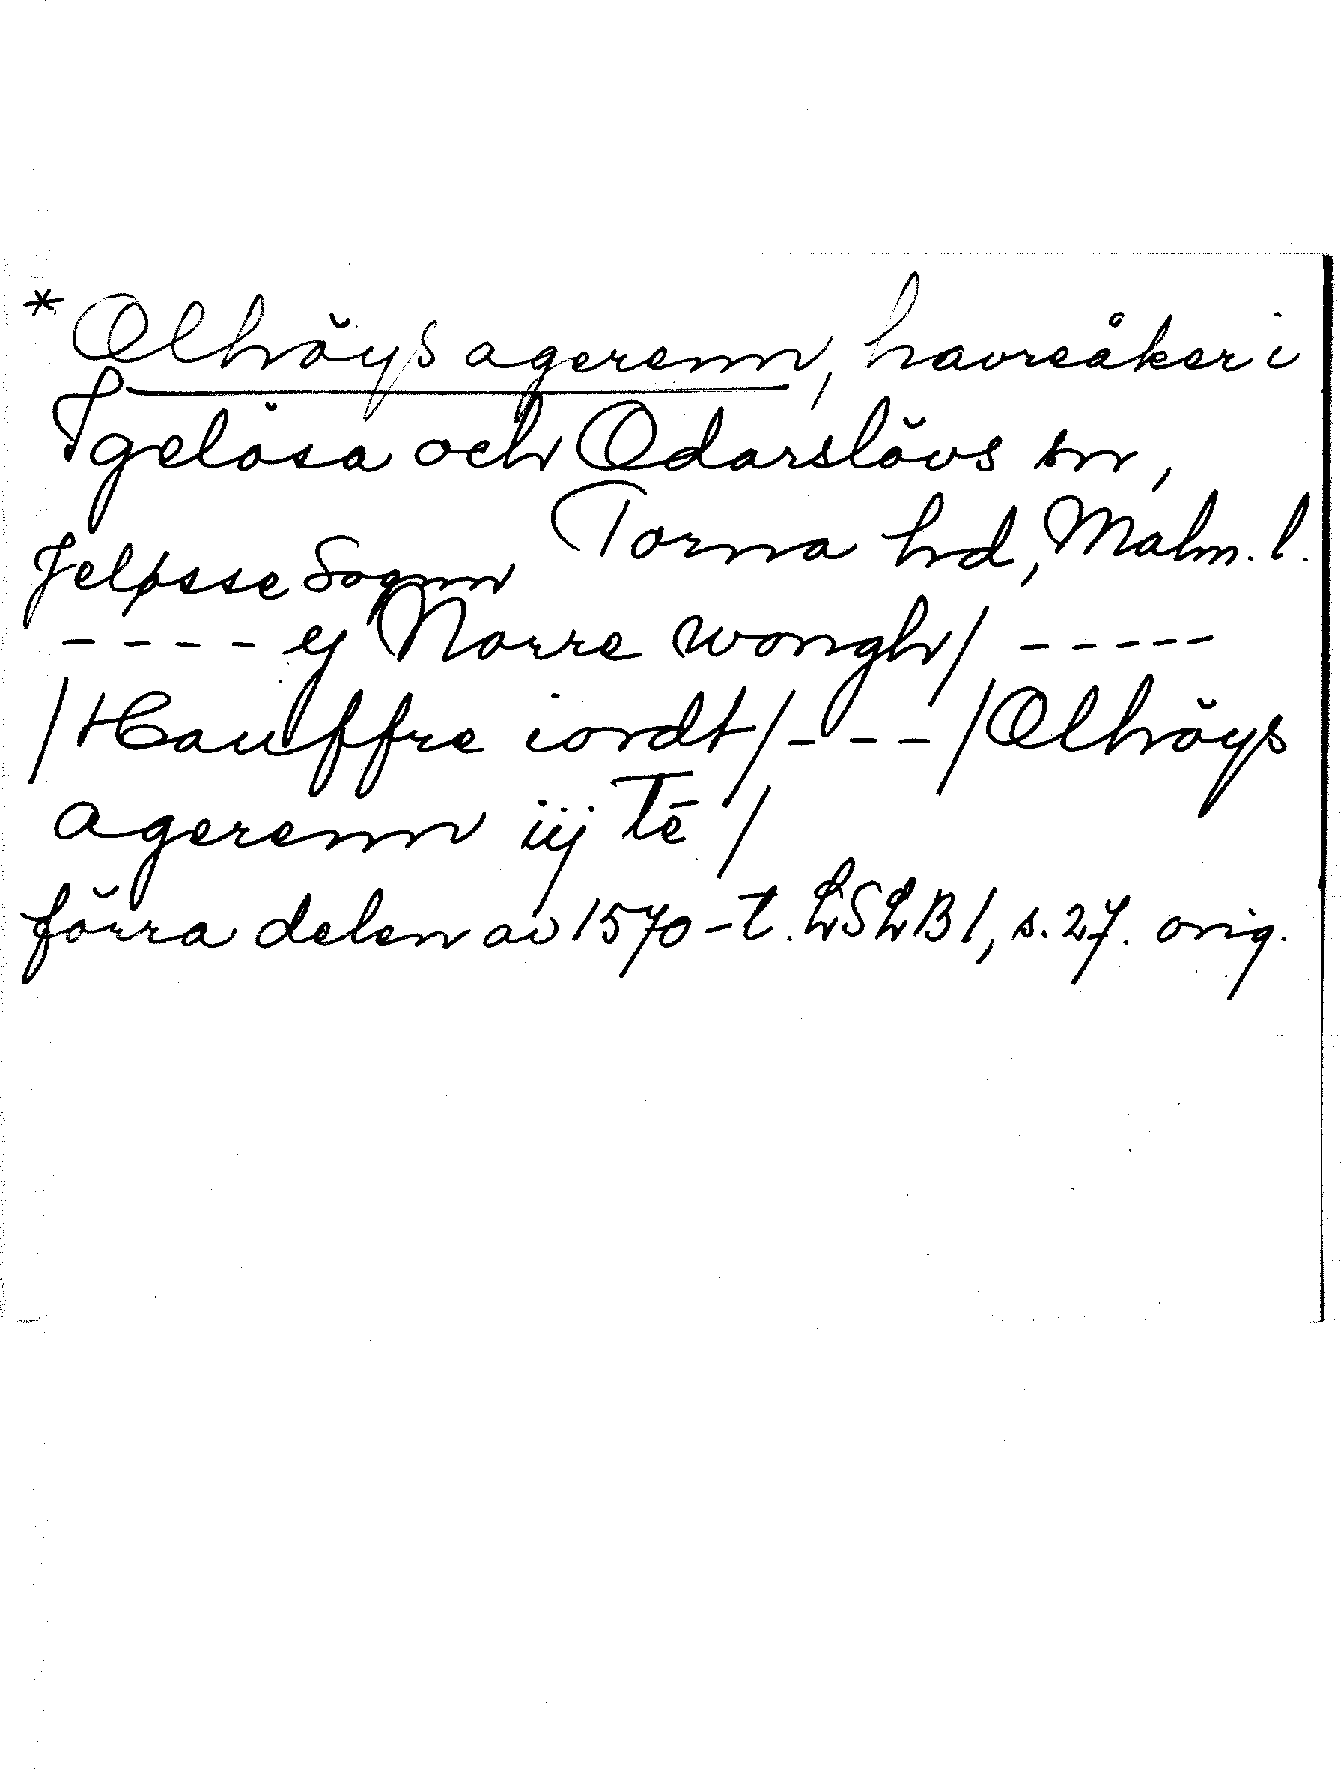 *Olhŏys agerenn, havreåker i
Igelösa och Odarslövs sn,
Torna hd, Malm. l.
Jeløsse Sognn
---- ej Norre wongh/ -----
/Hauffre iordt/---/Olhŏys
agerenn iij Tē /
förra delen av 1570-t. LSLB 1, s. 27. orig.